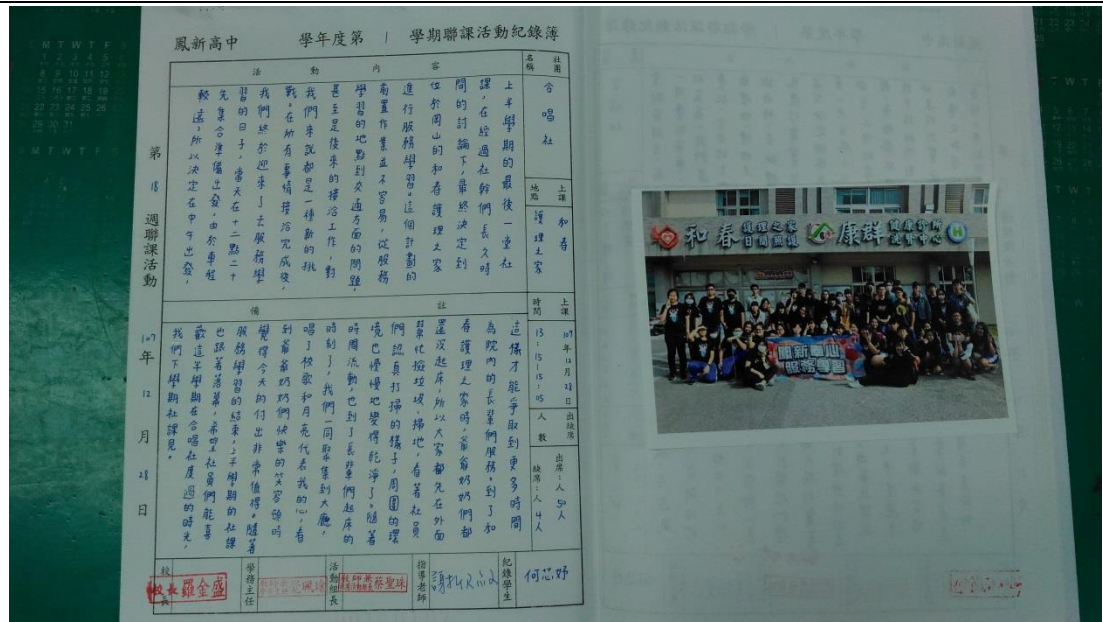 鳳新高中 學年度第 1 學期聯課活動紀錄簿
社團名稱
合唱社
上課地點
和春護理之家
上課時間
107年12月28日
13:15-15:05
出缺席人數
出席:人 50人
缺席:人 4人
活動內容
上半學期的最後一堂社
課,在經過社幹們長久時
間的討論下,最終決定到
位於岡山的和春護理之家
進行服務學習。這個計劃的
前置作業並不容易,從服務
學習的地點到交通方面的問題,
甚至是後來的接洽工作,對
我們來說都是一種新的挑
戰。在所有事情接洽完成後,
我們終於迎來了去服務學
習的日子,當天在十二點二十
先集合準備出發,由於車程
較遠,所以決定在中午出發,
備註
這樣才能爭取到更多時間
為院內的長輩們服務。到了和
春護理之家時,爺爺奶奶們都
還沒起床,所以大家都先在外面
幫忙撿垃圾、掃地,看著社員
們認真打掃的樣子,周圍的環
境也慢慢地變得乾淨了。隨著
時間流動,也到了長輩們起床的
時刻了,我們一同聚集到大廳,
唱了校歌和月亮代表我的心,看
到爺爺奶奶們快樂的笑容頓時
覺得今天的付出非常值得。隨著
服務學習的結束,上半學期的社課
也跟著落幕,希望社員們能喜
歡這半學期在合唱社度過的時光,
我們下學期社課見。
紀錄學生
何芯妤
指導老師
活動組長
蔡聖珠
學務主任
校長
校長羅金盛
第 18 週聯課活動
107 年 12 月 28 日
和春 護理之家 日間照護 康群 健康診所 洗腎中心
鳳新童心
服務學習